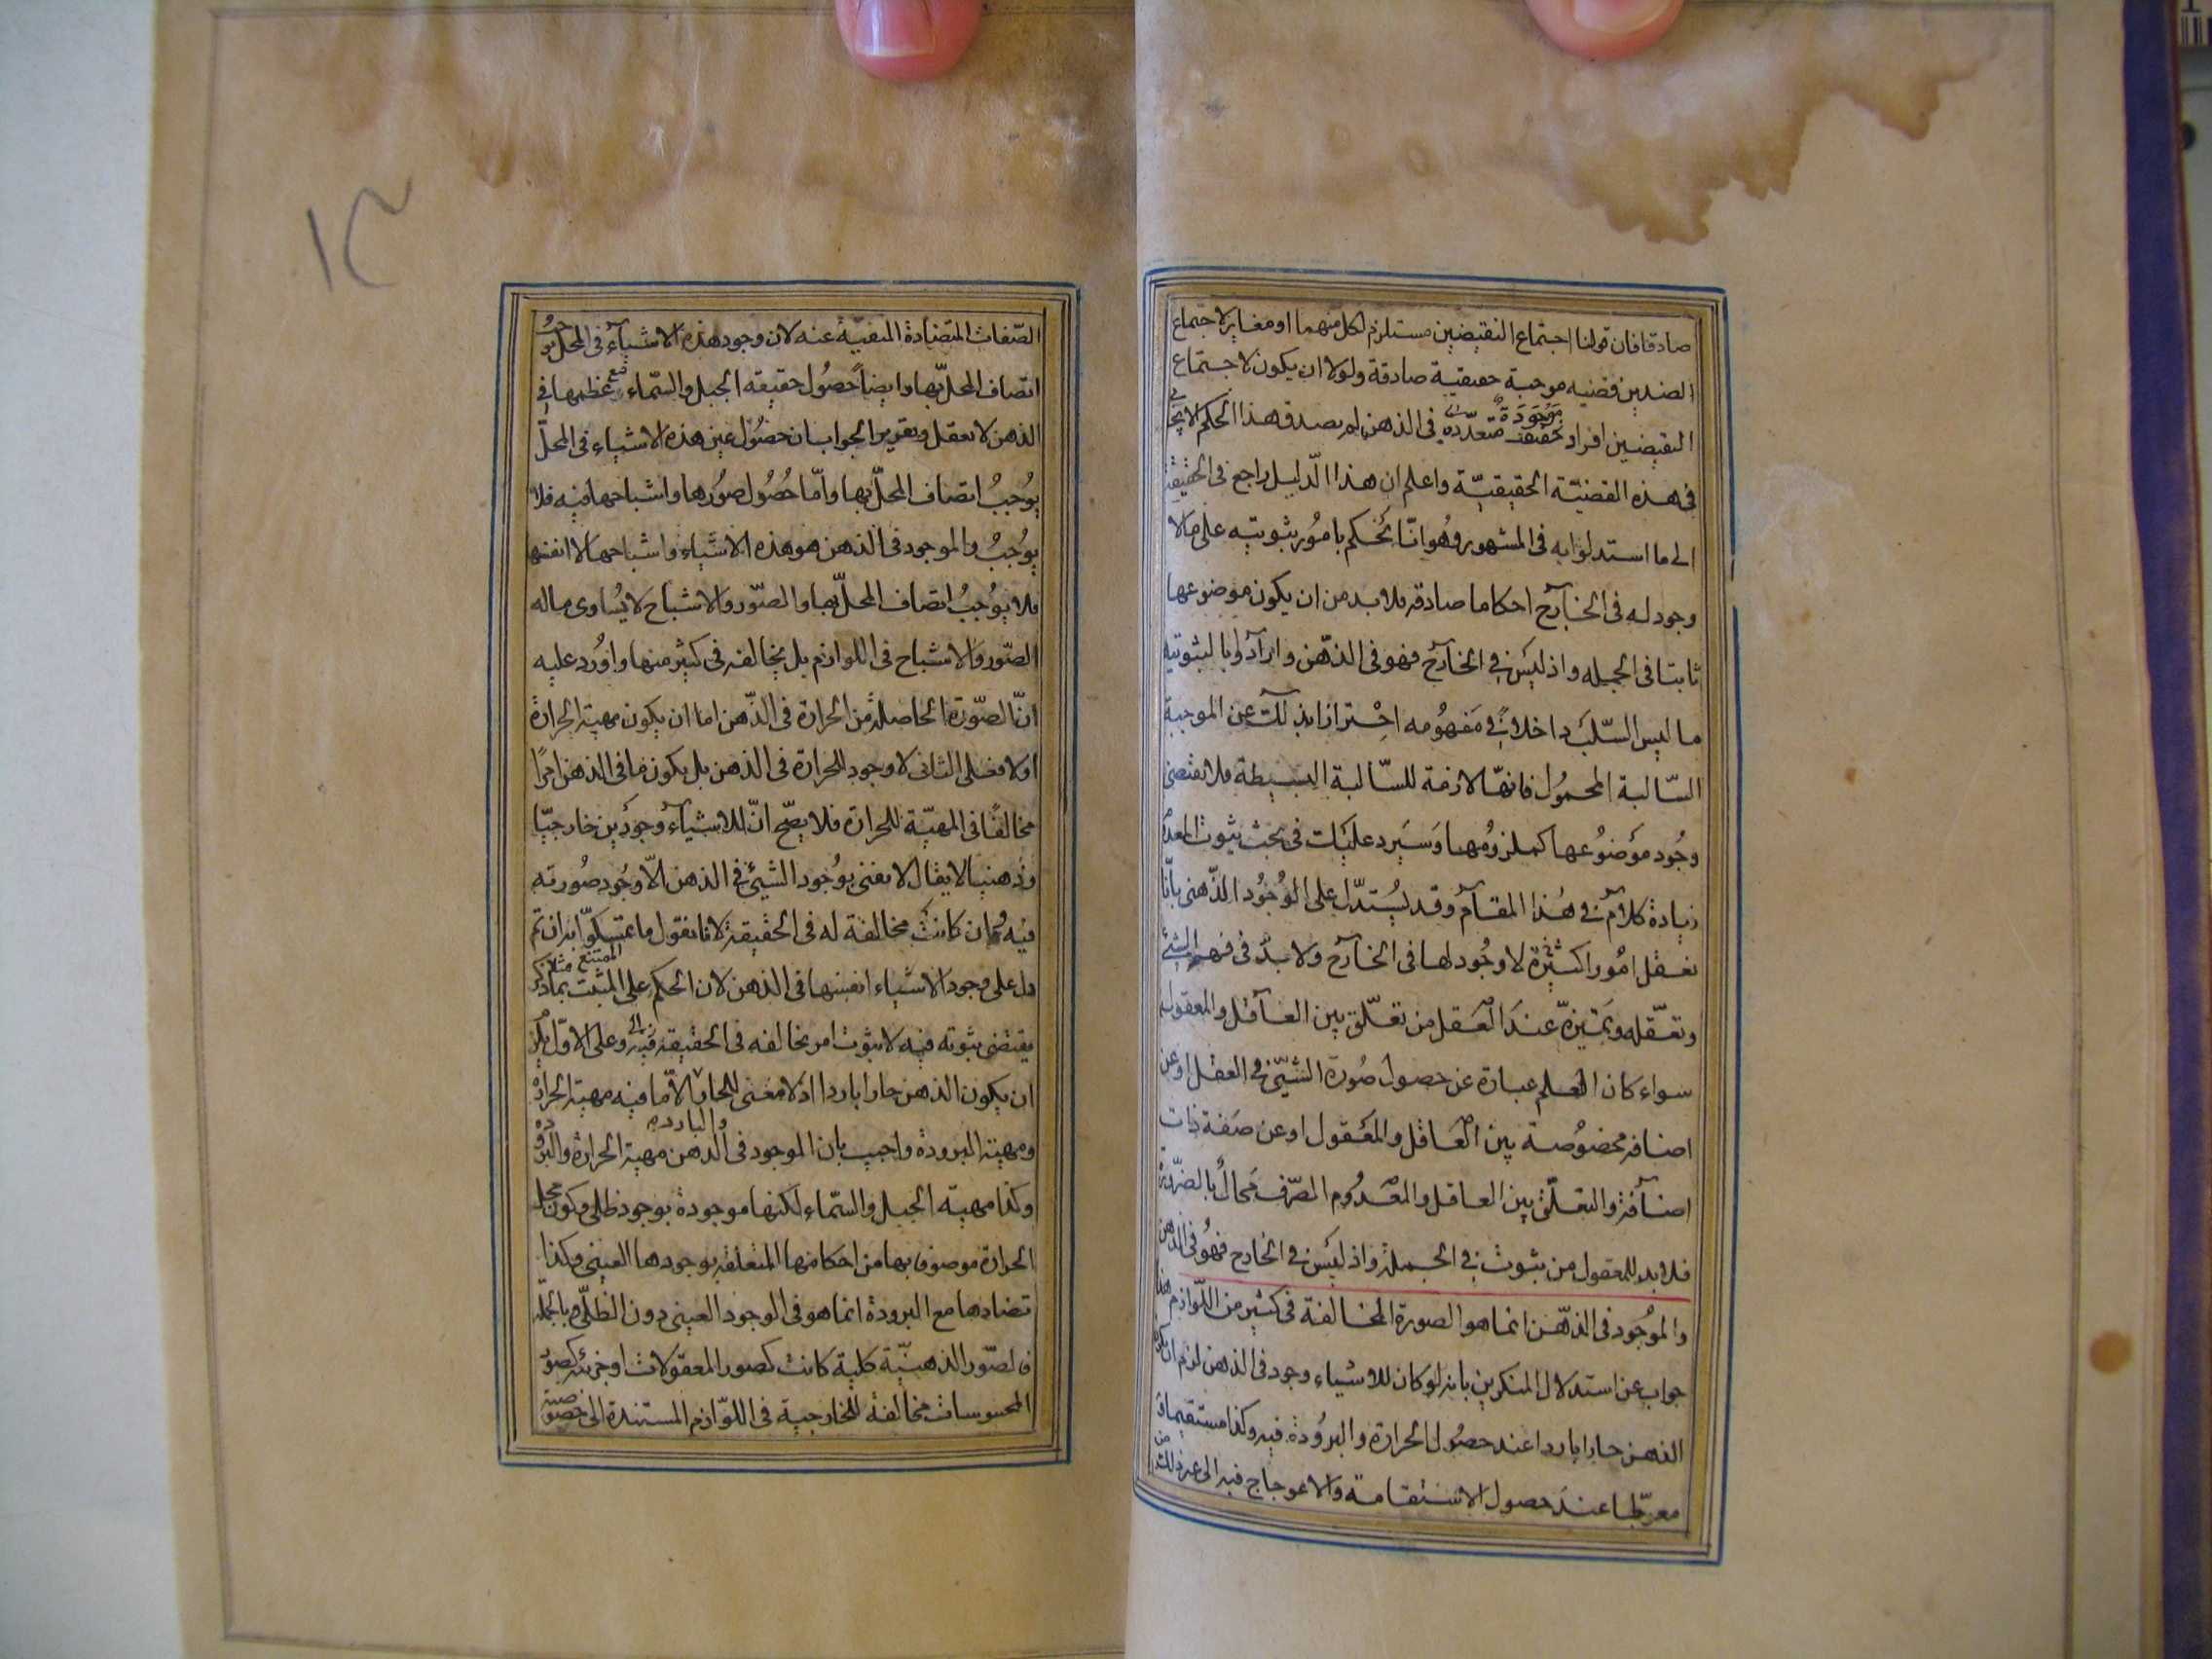 صادقا فان قولنا اجتماع النقيضين مستلزم لكل منهما او مغاير لاجتماع
الضدين قضيه موجبة حقيقية صادقة ولولا ان يكون لاجتماع
النقيضين افراد موجودة محققة متعددة فى الذهن لم يصدق هذا الحكم الايجابى
فى هذه القضيّة الحقيقيّة واعلم ان هذا الدّليل راجع فى الحقيقة
الى ما استدلوا به فى المشهور وهُو انّا نحكم بامُور ثبوتيه على ما لا
وجود له فى الخارج احكاما صادقه فلا بد من ان يكون موضوعها
ثابتا فى الجمله واذ ليس فى الخارج فهو فى الذّهن وارادوا بالثبوتيه
ما ليس السّلب داخلا فى مفهُومه احْترازا بذلك عن الموجبة
السّالبة المحمُول فانهّا لازمة للسّالبة البسيطة فلا تقتضى
وجُود موضوُعها كملزومُها وسيرد عليك فى بحث ثبوت المعدوم
زيادة كلام فى هذا المقام وقد يُستدلّ على الوُجُود الذّهنى بانّا
نعقل امُورا كثيرة لا وجُود لها فى الخارج ولا بدّ فى فهم الشئ
وتعّقله وتميّزه عندَ العَقل من تعّلق بين العاقل والمعقول
سواء كان العلم عبارة عن حصول صُورة الشّئ فى العقل او عن
اضافه مخصُوصة بين العَاقل والمَعقول او عن صَفة ذات
اضافة والتعلّق بين العاقل والمعدُوم الصّرف محالٌ بالضرورة
فلا بد للمعقول من ثبوت فى الجملة واذ ليس فى الخارج فهُو فى الذهن
والموُجود فى الذّهن انما هو الصورة المخالفة فى كثير من اللّوازم هذا
جواب عن استدلال المنكرين بانه لو كان للاشياء وجود فى الذهن لزم ان يكون
الذهن حارا باردا عند حصُول الحرارة والبرُودة فيه وكذا مستقيما
معوجّا عند حصول الاستقامة والاعوجاج فيه الى غير ذلك من
الصّفات المتضادة المنفيّة عنه لان وجود هذه الاشياء فى المحل يوجب
اتصاف المحلّ بها وايضاً حصُول حقيقه الجبل والسّماء مع عظمها فى
الذهن لا يعقل وتقرير الجواب ان حصُول عين هذه الاشياء فى المحلّ
يوُجبُ اتصاف المحلّ بها وامّا حُصُول صوُرها واشباحها فيه فلا
يوُجبُ والموجود فى الذهن هو هذه الاشياء واشباحها لا انفسها
فلا يوُجبُ اتصاف المحلّ بها والصّور والاشباح لا يُساوى ماله
الصّور والاشباح فى اللوازم بل يخالفه فى كثير منها واوُرد عليه
انّ الصّورة الحاصلة من الحرارة فى الذّهن اما ان يكون مهية الحرارة
اولا فعلى الثانى لا وجود للحرارة فى الذهن بل يكون ما فى الذهن امرًا
مخالفًا فى المهيّة للحرارة فلا يصّح انّ للاشياء وجودين خارجيّا
وذهنيا لا يقال لا نعنى بوُجود الشئ فى الذهن الّا وجُود صُورته
فيه وان كانت مخالفة له فى الحقيقة لانا نقول ما تمسكوّا به ان تم
دل على وجود الاشياء انفسها فى الذهن لان الحكم على الممتنع مثلا
يقتضى ثبوته فيه لا ثبوت امر يخالفه فى الحقيقة فيه وعلى الاوّل يلزم
ان يكون الذهن حارا باردا اذ لا معنى للحار والبارد الّا ما فيه مهية الحرارة
ومهية البرودة واجيب بان الموجود فى الذهن مهية الحرارة والبرودة
وكذا مهية الجبل والسّماء لكنها موجودة بوجود ظلى وكون محل
الحرارة موصوفا بها من احكامها المتعلقة بوجودها العينى وكذا
تضادها مع البرودة انما هو فى الوجود العينى دون الظلّى وبالجملة
فالصّور الذهنيّة كلية كانت كصور المعقولات او جزئيه كصور
المحسوسات مخالفة للخارجية فى اللوّازم المستندة الى خصوصية
١٢